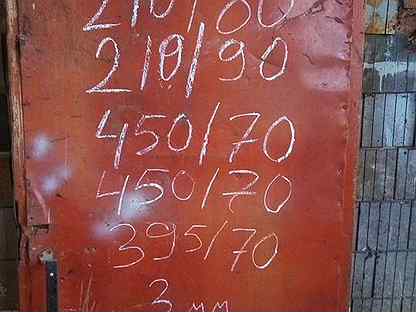 210/60
210/90
450/70
450/70
395/70
3 мм